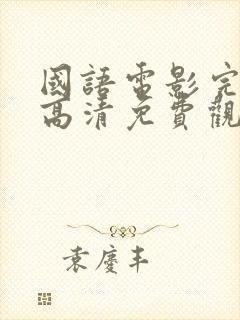 國語電影完
高清免費觀
袁慶丰